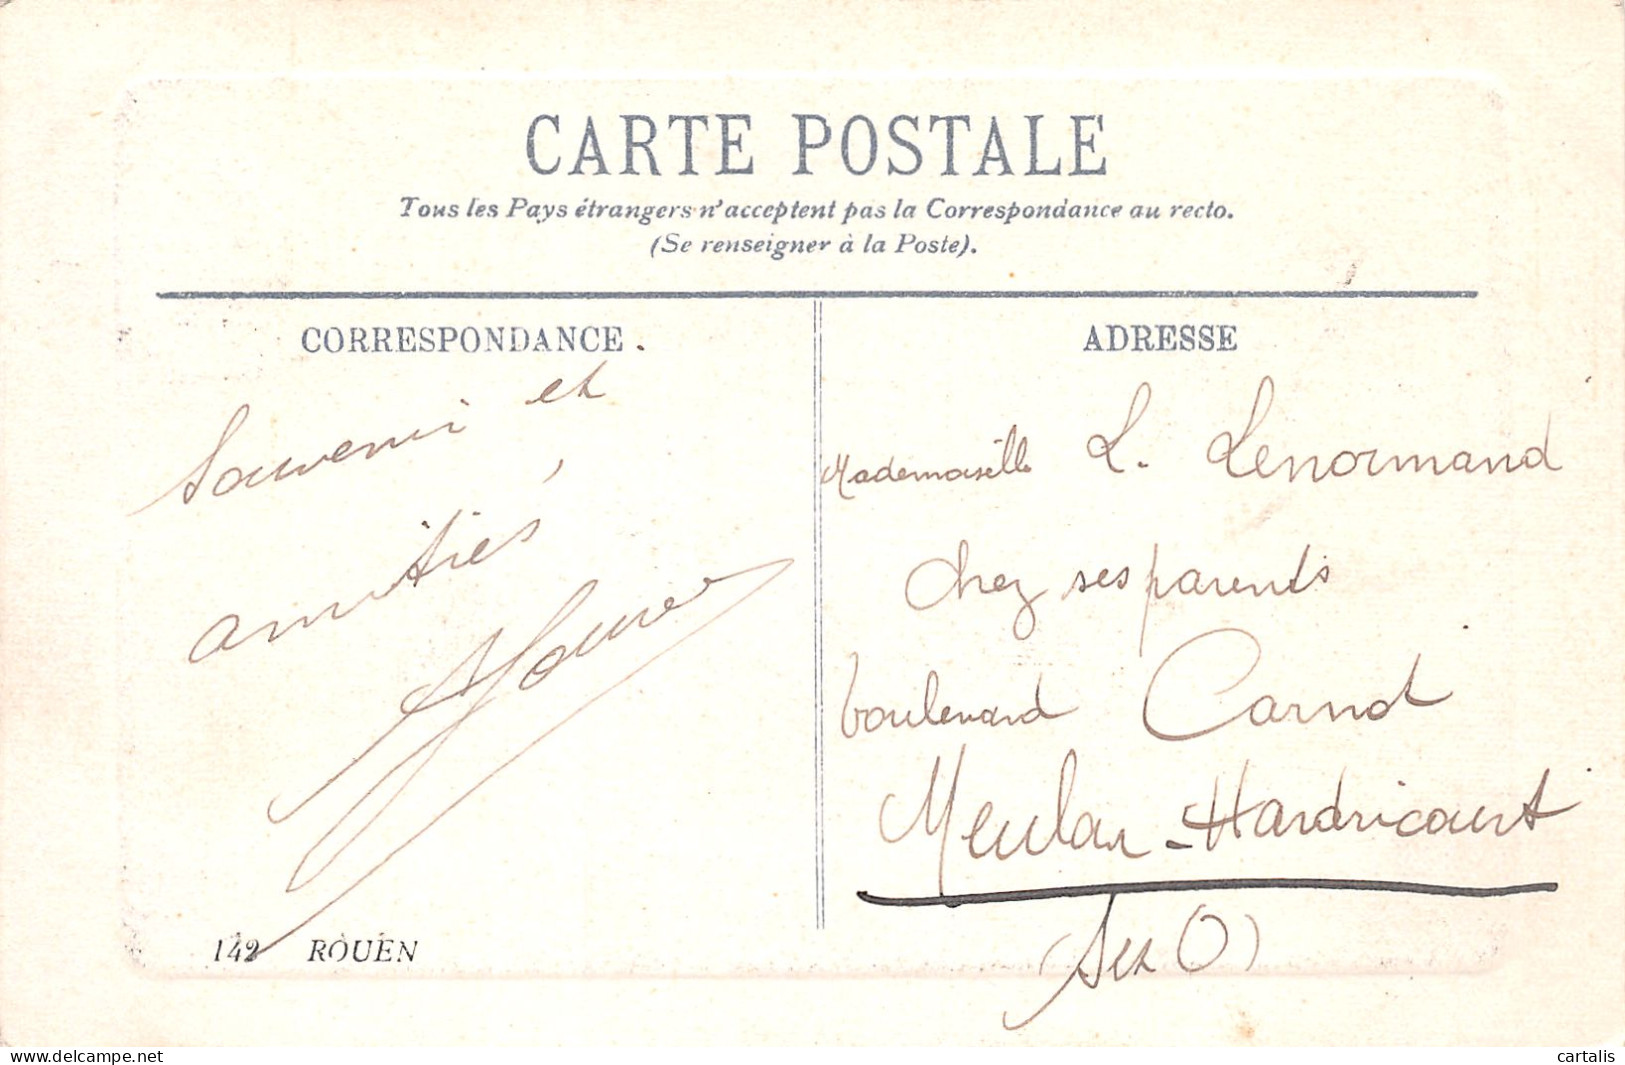 CARTE POSTALE
Tous les Pays étrangers n'acceptent pas la Correspondance au recto.
(Se renseigner à la Poste).
CORRESPONDANCE.
Souvenir et
amitiés,
142 ROUEN
ADRESSE
Mademoiselle L. Lenormand
chez ses parents
boulevard Carnot
Meulan-Hardricourt
(S et O)
www.delcampe.net
cartalis